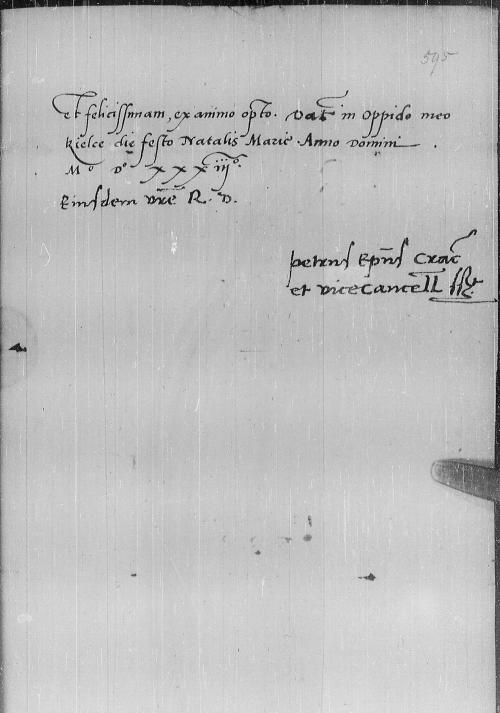 595
et felicissimam, ex animo opto. Dat in oppido meo
kielce die festo Natalis Marie Anno Domini
Mo Do xxxiijo.
Eiusdem vre R. D.
petrus Epus Crac
et viceCancell sst